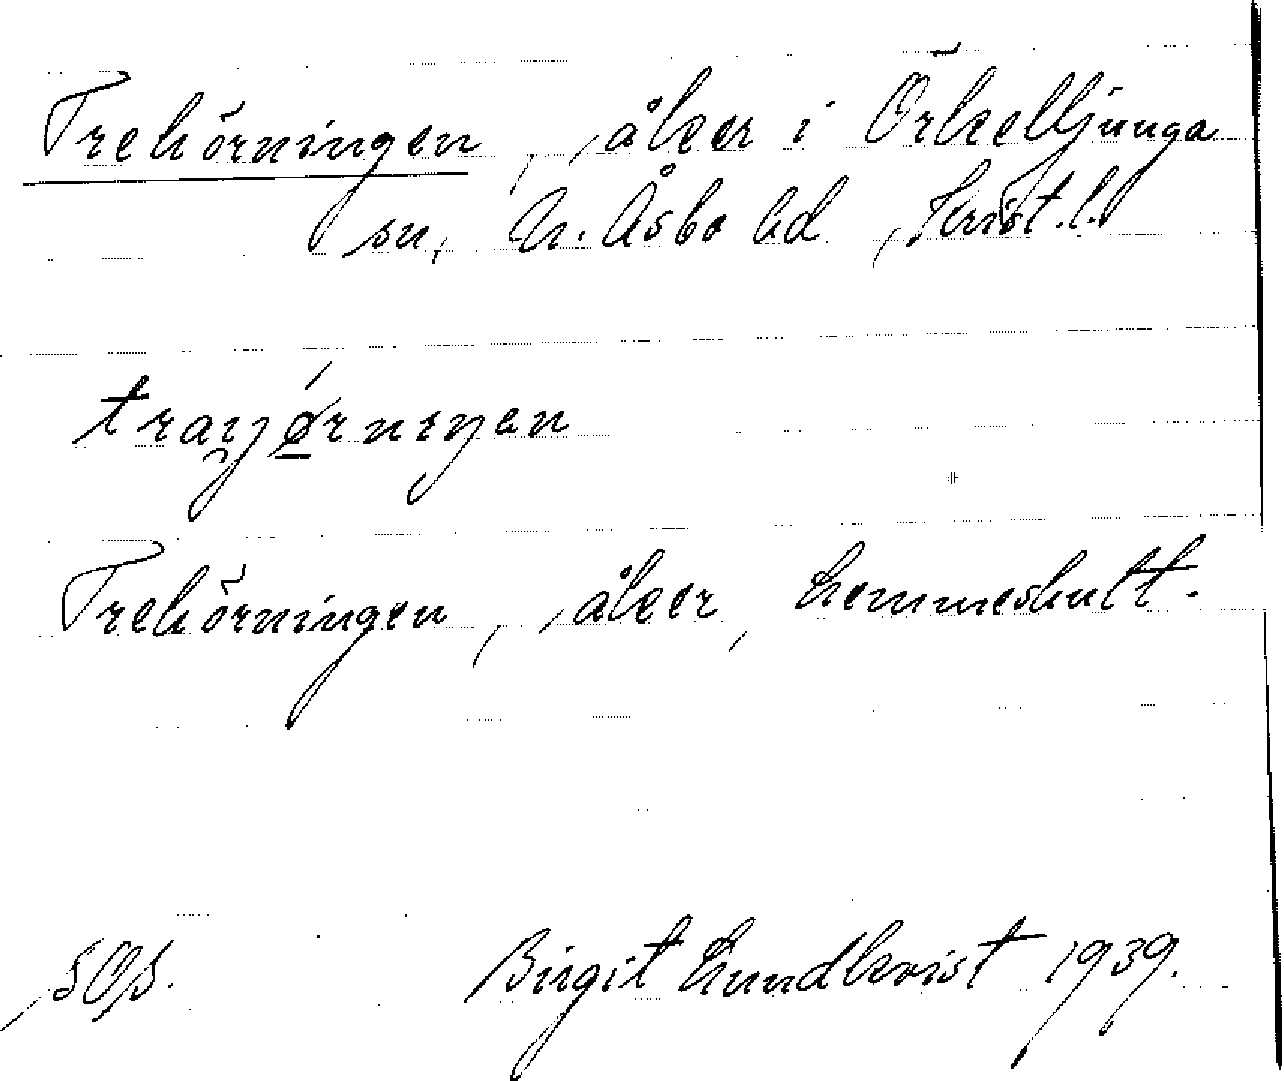 Trehörningen, åker i Örkelljunga
sn, N. Åsbo hd, Krist. l.
Trehörningen, åker, Lemmeshult.
SOS. Birgit Lundkvist 1939.